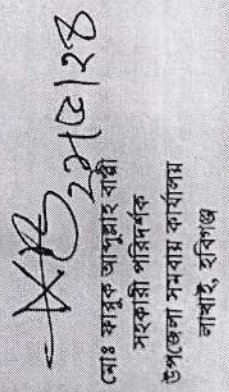 ২১/৫/২৪
মোঃ ফারুক আব্দুল্লাহ বাকী
সহকারী পরিদর্শক
উপজেলা সমবায় কার্যালয়
লাখাই, হবিগঞ্জ